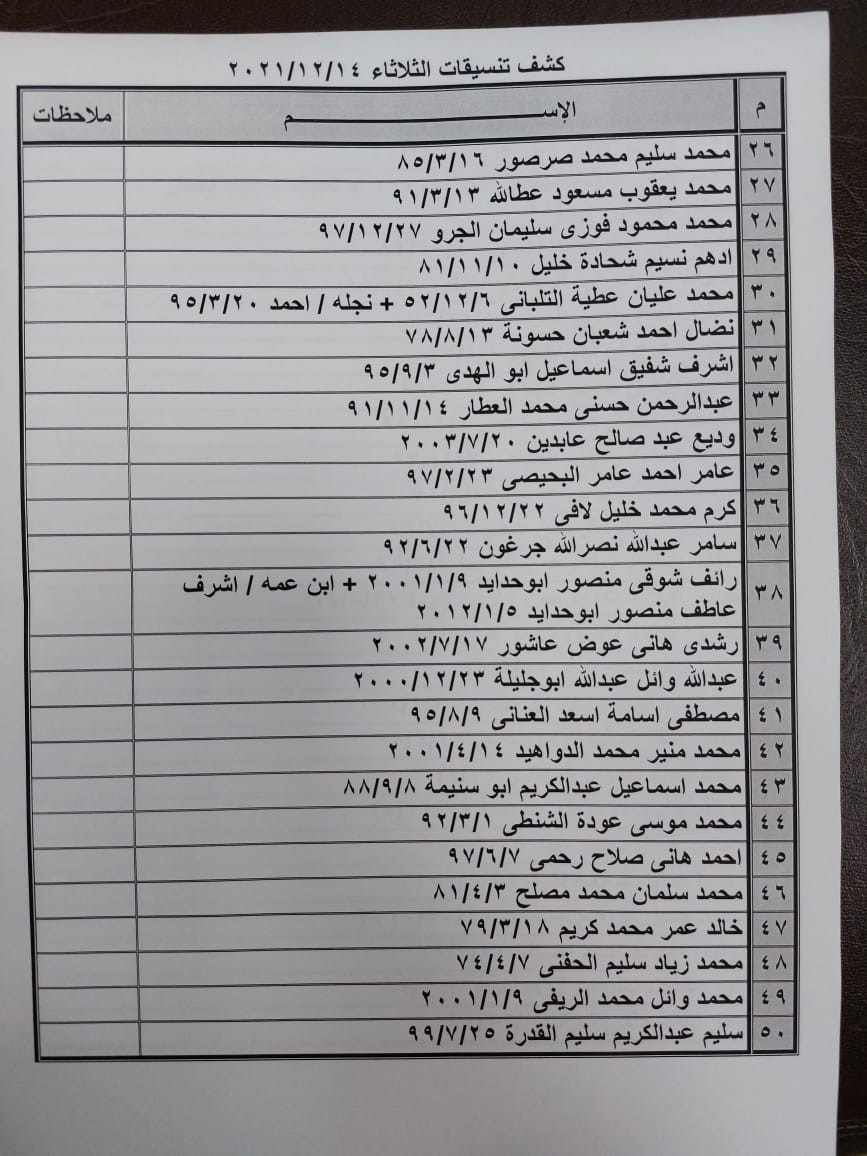 كشف تنسيقات الثلاثاء ٢٠٢١/١٢/١٤
م الإســـم ملاحظات
٢٦ محمد سليم محمد صرصور ٨٥/٣/١٦
٢٧ محمد يعقوب مسعود عطالله ٩١/٣/١٣
٢٨ محمد محمود فوزى سليمان الجرو ٩٧/١٢/٢٧
٢٩ ادهم نسيم شحادة خليل ٨١/١١/١٠
٣٠ محمد عليان عطية التلبانى ٥٢/١٢/٦ + نجله / احمد ٩٥/٣/٢٠
٣١ نضال احمد شعبان حسونة ٧٨/٨/١٣
٣٢ اشرف شفيق اسماعيل ابو الهدى ٩٥/٩/٣
٣٣ عبدالرحمن حسنى محمد العطار ٩١/١١/١٤
٣٤ وديع عبد صالح عابدين ٢٠٠٣/٧/٢٠
٣٥ عامر احمد عامر البحيصى ٩٧/٢/٢٣
٣٦ كرم محمد خليل لافى ٩٦/١٢/٢٢
٣٧ سامر عبدالله نصرالله جرغون ٩٢/٦/٢٢
٣٨ رائف شوقى منصور ابوحدايد ٢٠٠١/١/٩ + ابن عمه / اشرف
عاطف منصور ابوحدايد ٢٠١٢/١/٥
٣٩ رشدى هانى عوض عاشور ٢٠٠٢/٧/١٧
٤٠ عبدالله وائل عبدالله ابوجليلة ٢٠٠٠/١٢/٢٣
٤١ مصطفى اسامة اسعد العنانى ٩٥/٨/٩
٤٢ محمد منير محمد الدواهيد ٢٠٠١/٤/١٤
٤٣ محمد اسماعيل عبدالكريم ابو سنيمة ٨٨/٩/٨
٤٤ محمد موسى عودة الشنطى ٩٢/٣/١
٤٥ احمد هانى صلاح رحمى ٩٧/٦/٧
٤٦ محمد سلمان محمد مصلح ٨١/٤/٣
٤٧ خالد عمر محمد كريم ٧٩/٣/١٨
٤٨ محمد زياد سليم الحفنى ٧٤/٤/٧
٤٩ محمد وائل محمد الريفى ٢٠٠١/١/٩
٥٠ سليم عبدالكريم سليم القدرة ٩٩/٧/٢٥